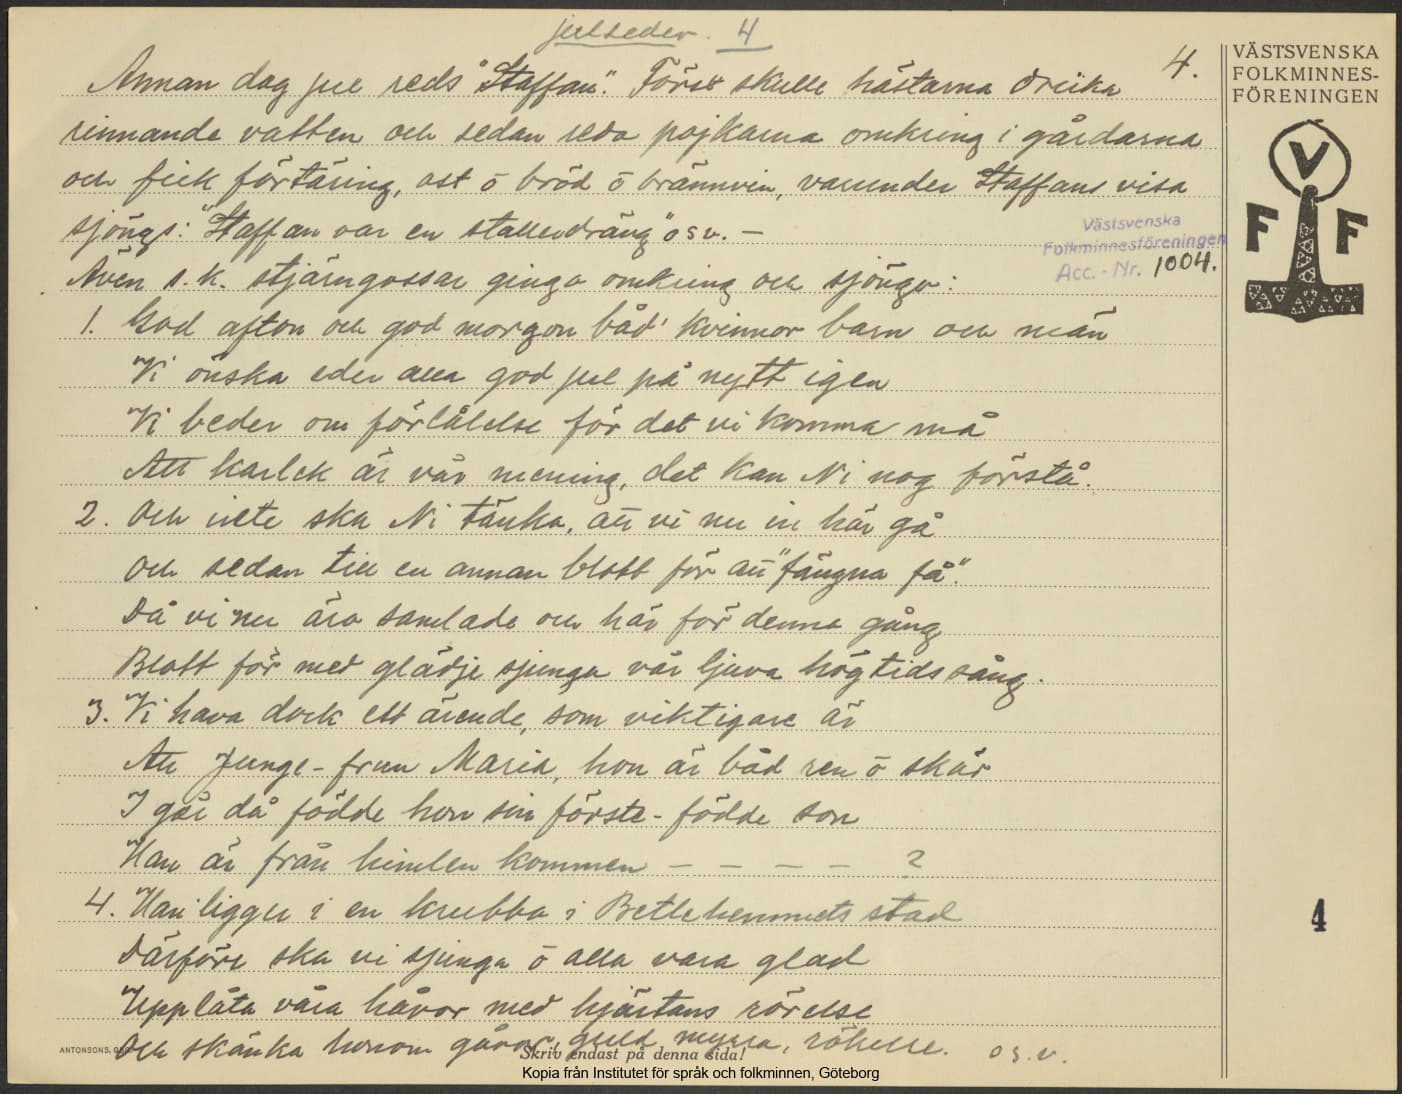 julseder. 4
4.
Annan dag jul reds "Staffan". Först skulle hästarna dricka
rinnande vatten och sedan redo pojkarna omkring i gårdarna
och fick förtäring, ost ō bröd ō brännvin, varunder Staffans visa
sjöngs: "Staffan var en stalledräng" o s v. –
Även s. k. stjärngossar gingo omkring och sjöngo:
1. God afton och god morgon båd' kvinnor barn och män
Vi önska eder alla god jul på nytt igen
Vi beder om förlåtelse för det vi komma må
Att kärlek är vår mening, det kan Ni nog förstå.
2. Och inte ska Ni tänka, att vi nu in här gå
Och sedan till en annan blott för att "fängna få".
Då vi nu äro samlade och här för denna gång
Blott för med glädje sjunga vår ljuva högtidssång.
3. Vi hava dock ett ärende, som viktigare är
Att Jungfrun Maria, hon är båd ren ō skär
I går då födde hon sin förste-födde son
Han är från himlen kommen – – – – ?
4. Han ligger i en krubba i Betlehemmets stad
Därföre ska vi sjunga ō alla vara glad
Upplåta våra håvor med hjärtans rörelse
Och skänka honom gåvor, guld myrra, rökelse. o s. v.
VÄSTSVENSKA
FOLKMINNES-
FÖRENINGEN
V
F F
Västsvenska
Folkminnesföreningen
Acc. - Nr. 1004.
4
ANTONSONS, GBG
Skriv endast på denna sida!
Kopia från Institutet för språk och folkminnen, Göteborg